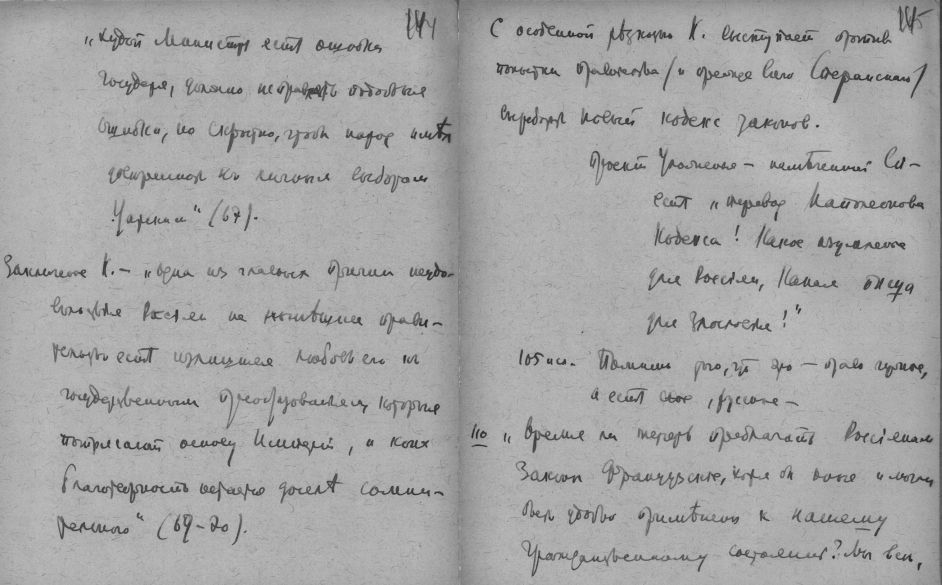 144
„Худой Министр есть ошибка
государя, должно исправлять подобные
ошибки, но скрытно, чтоб народ имѣл
довѣренность къ личным выборам
Царским" (67).
Заключение К. — „одна из главных причин неудо-
вольствія Россіян на нынѣшнее прави-
тельство есть излишняя любовь его к
государственным преобразованіям, которые
потрясают основу Имперіи, и коих
благотворность остается доселѣ сомни-
тельною" (69-70).
145
С особенной рѣзкостью К. выступает против
попытки правительства /и прежде всего Сперанского/
выработать новый кодекс законов.
Проект Уложенія —
есть „перевод Наполеонова
Кодекса! Какое изумление
для Россіян, Какая пища
для злословія!"
105 Помимо того, что это — право чужое,
а есть свое, русское —
110 „Время ли теперь предлагать Россіянам
Законы Французские, хотя бы оные и могли
быть удобно примѣнены к нашему
гражданственному состоянию? Мы все,